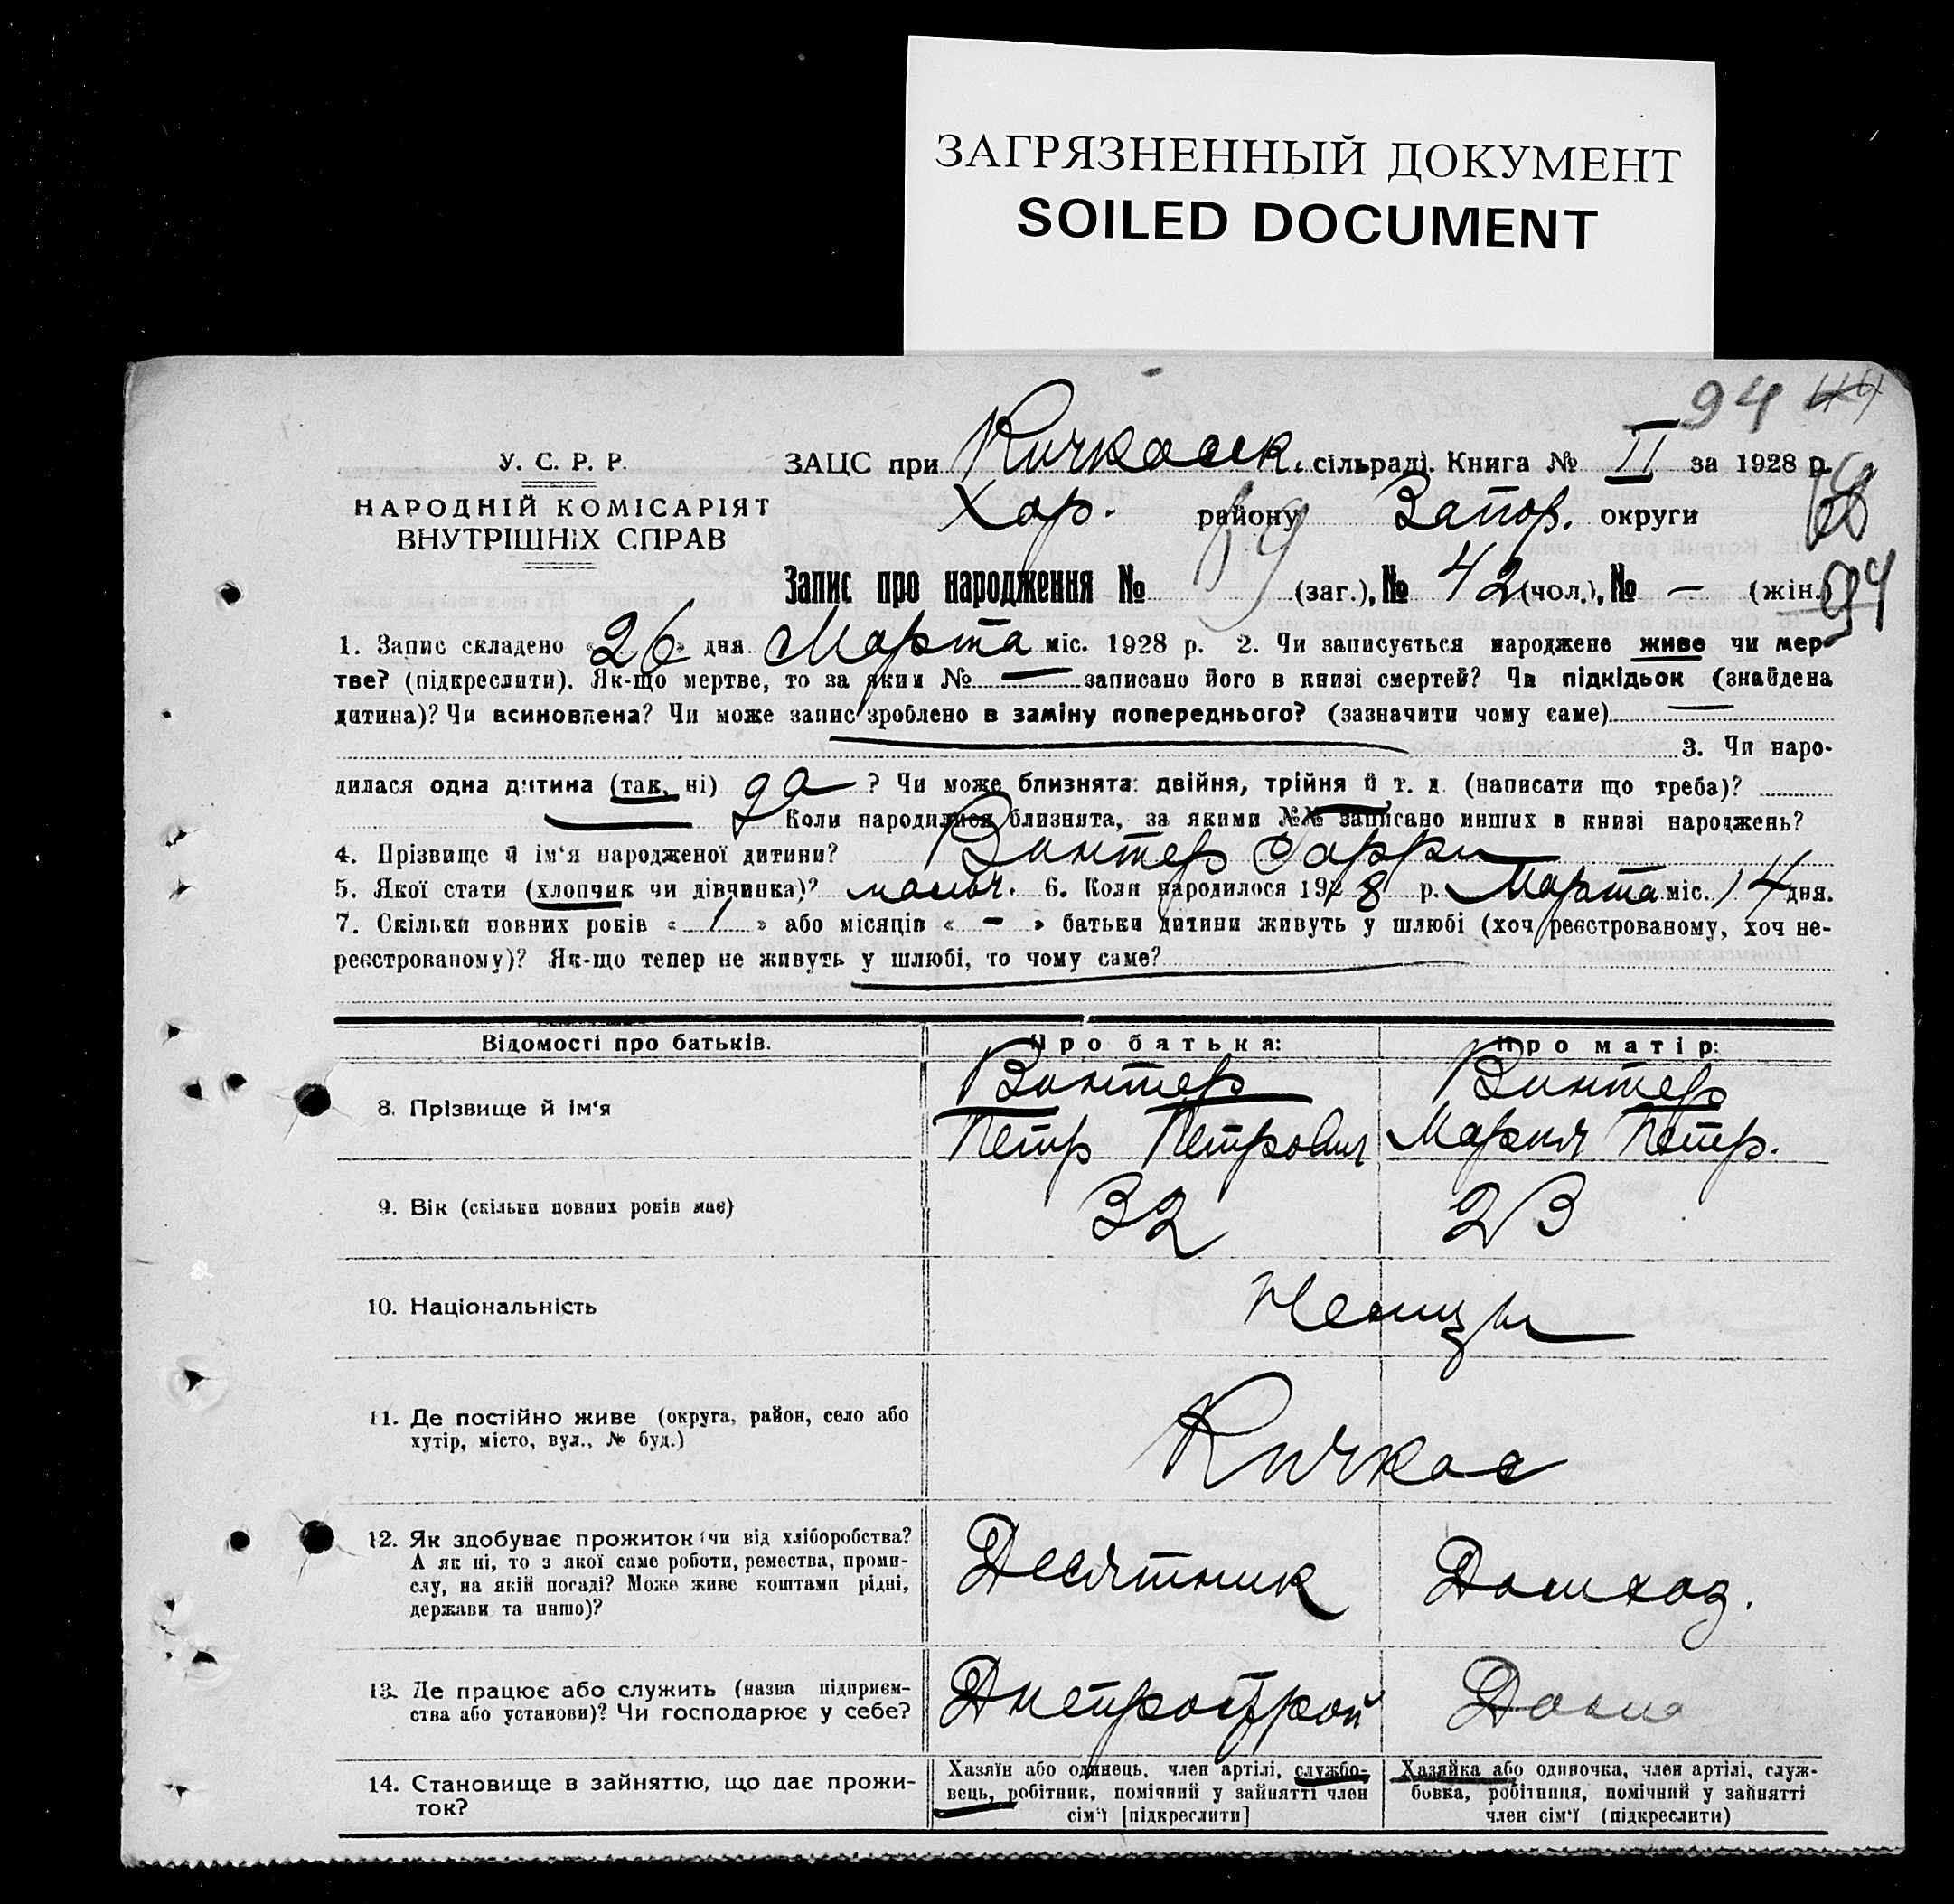 ЗАГРЯЗНЕННЫЙ ДОКУМЕНТ
SOILED DOCUMENT
94
У. С. Р. Р.
НАРОДНІЙ КОМІСАРІЯТ
ВНУТРІШНІХ СПРАВ
ЗАЦС при Кичкасск. сільраді. Книга № II за 1928 р.
Хор. району Запор. округи
Запис про народження № (заг.), № 42 (чол.), № — (жін.)
94
1. Запис складено «26» дня Марта міс. 1928 р. 2. Чи записується народжене живе чи мер-
тве? (підкреслити). Як-що мертве, то за яким № — записано його в книзі смертей? Чи підкідьок (знайдена
дитина)? Чи всиновлена? Чи може запис зроблено в заміну попереднього? (зазначити чому саме) —
3. Чи наро-
дилася одна дитина (так, ні) да ? Чи може близнята: двійня, трійня й т. д. (написати що треба)?
Коли народилися близнята, за якими №№ записано инших в книзі народжень?
4. Прізвище й ім'я народженої дитини? Винтер Гарри
5. Якої стати (хлопчик чи дівчинка)? мальч. 6. Коли народилося 1928 р. Марта міс. 14 дня.
7. Скільки повних років « 1 » або місяців « – » батьки дитини живуть у шлюбі (хоч реєстрованому, хоч не-
реєстрованому)? Як-що тепер не живуть у шлюбі, то чому саме?
Відомості про батьків. Про батька: Про матір:
8. Прізвище й ім'я Винтер Петр Петрович Винтер Мария Петр.
9. Вік (скільки повних років має) 32 23
10. Національність Немцы
11. Де постійно живе (округа, район, село або
хутір, місто, вул., № буд.) Кичкас
12. Як здобуває прожиток (чи від хліборобства?
А як ні, то з якої саме роботи, ремества, проми-
слу, на якій посаді? Може живе коштами рідні,
держави та инше)? Десятник Домход.
13. Де працює або служить (назва підприєм-
ства або установи)? Чи господарює у себе? Днепрострой Дома
14. Становище в зайняттю, що дає прожи-
ток?
Хазяїн або одинець, член артілі, службо-
вець, робітник, помічний у зайнятті член
сім'ї [підкреслити]
Хазяйка або одиночка, член артілі, служ-
бовка, робітниця, помічний у зайнятті
член сім'ї (підкреслити)